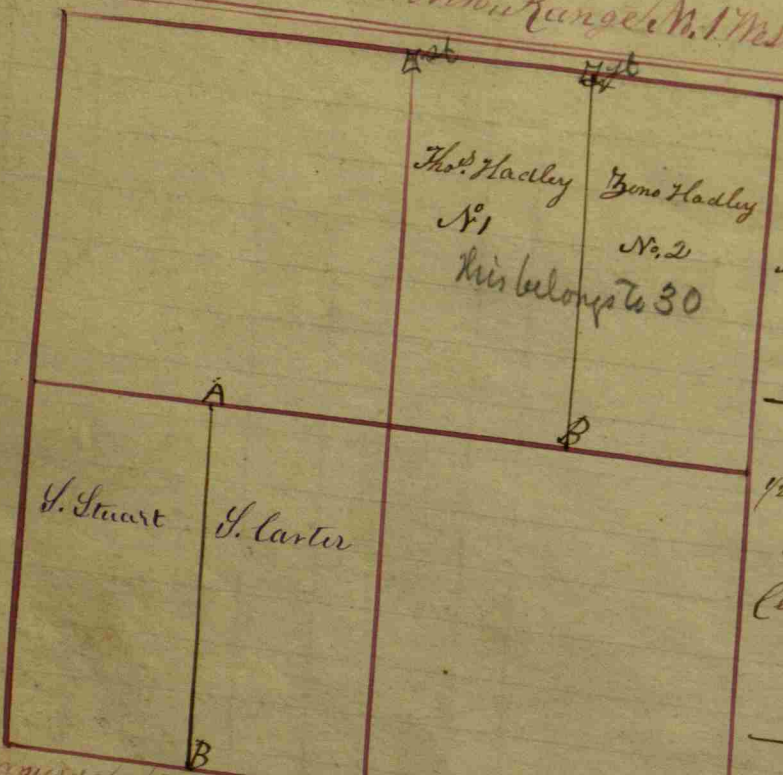 Range No. 1 Wes
Thos. Hadley
No 1
Zeno Hadley
No. 2
this belongs to 30
A
B
S. Stuart
S. Carter
B